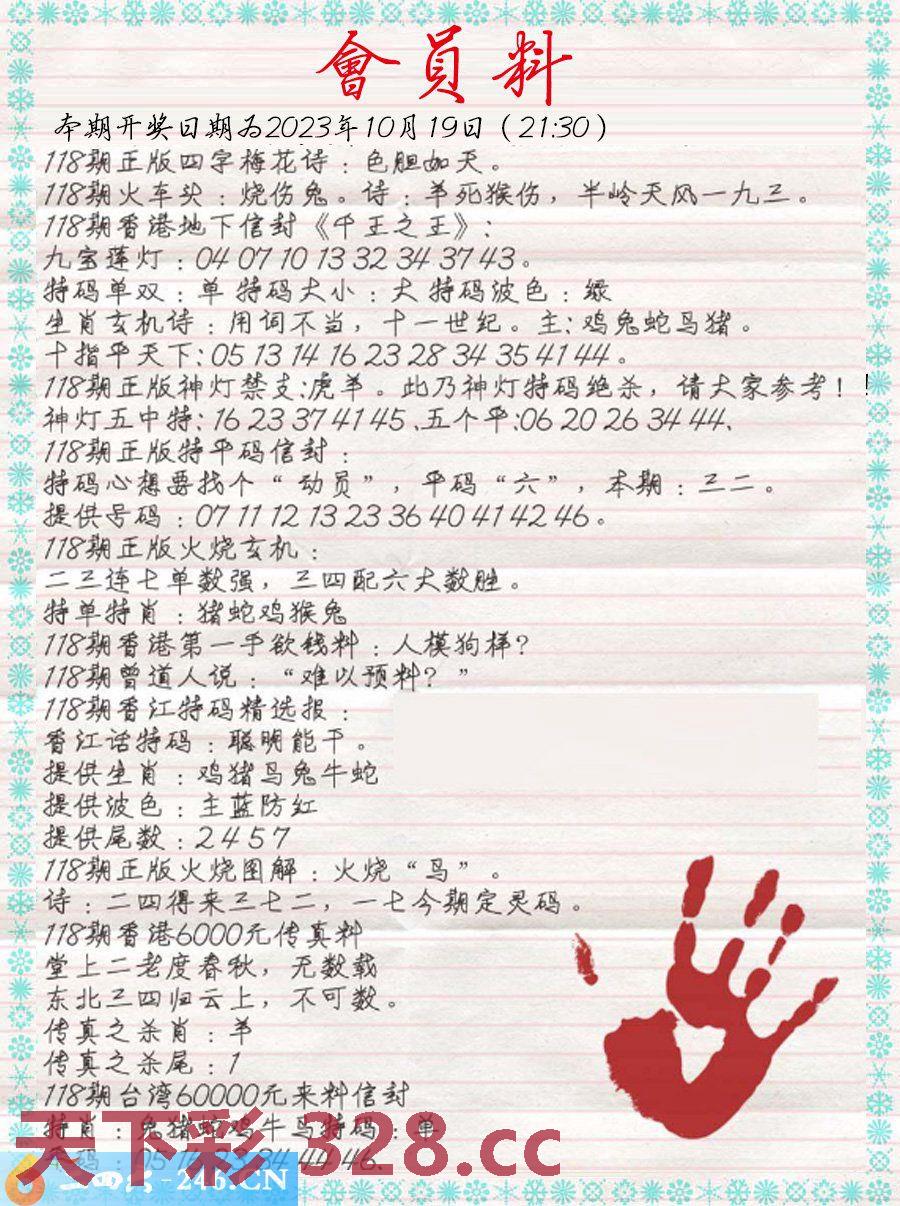 會員料
本期开奖日期为2023年10月19日（21:30）
118期正版四字梅花诗：色胆如天。
118期火车头：烧伤兔。诗：羊死猴伤，半岭天风一九三。
118期香港地下信封《千王之王》:
九宝莲灯：04 07 10 13 32 34 37 43。
特码单双：单 特码大小：大 特码波色：绿
生肖玄机诗：用词不当，十一世纪。主: 鸡兔蛇马猪。
十指平天下: 05 13 14 16 23 28 34 35 41 44。
118期正版神灯禁支:虎羊。此乃神灯特码绝杀，请大家参考！！
神灯五中特: 16 23 37 41 45、五个平:06 20 26 34 44、
118期正版特平码信封：
特码心想要找个“动员”，平码“六”，本期：三二。
提供号码：07 11 12 13 23 36 40 41 42 46。
118期正版火烧玄机：
二三连七单数强，三四配六大数胜。
特单特肖：猪蛇鸡猴兔
118期香港第一手欲钱料：人模狗样？
118期曾道人说：“难以预料？”
118期香江特码精选报：
香江话特码：聪明能干。
提供生肖：鸡猪马兔牛蛇
提供波色：主蓝防红
提供尾数：2 4 5 7
118期正版火烧图解：火烧“鸟”。
诗：二四得来三七二，一七今期定灵码。
118期香港6000元传真料
堂上二老度春秋，无数载
东北三四归云上，不可数。
传真之杀肖：羊
传真之杀尾：1
118期台湾60000元来料信封
特肖：兔猪蛇鸡牛马特码：单
天下彩 328.cc
-246.CN